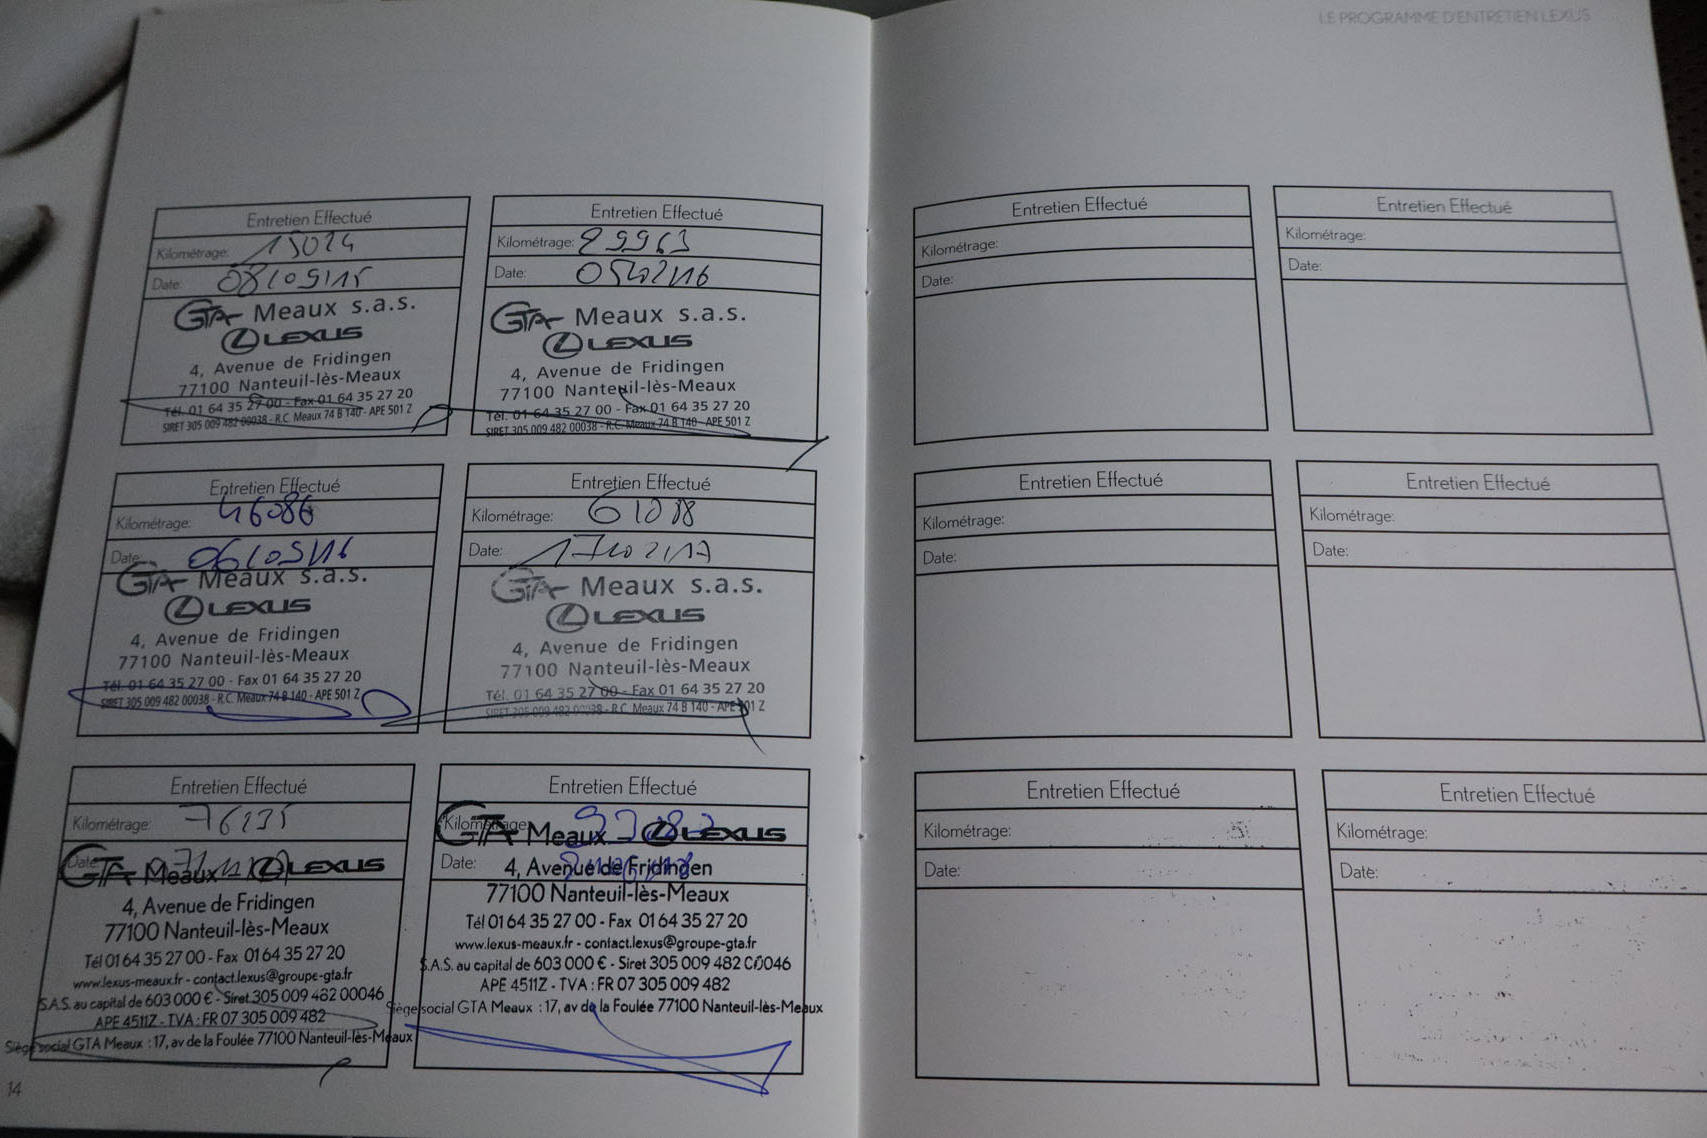 LE PROGRAMME D'ENTRETIEN LEXUS
Entretien Effectué
Kilométrage: 15024
Date: 08/09/15
GTA Meaux s.a.s.
LEXUS
4, Avenue de Fridingen
77100 Nanteuil-lès-Meaux
Tél. 01 64 35 27 00 - Fax 01 64 35 27 20
SIRET 305 009 482 00038 - R.C. Meaux 74 B 140 - APE 501 Z
Entretien Effectué
Kilométrage: 29963
Date: 05/02/16
GTA Meaux s.a.s.
LEXUS
4, Avenue de Fridingen
77100 Nanteuil-lès-Meaux
Tél. 01 64 35 27 00 - Fax 01 64 35 27 20
SIRET 305 009 482 00038 - R.C. Meaux 74 B 140 - APE 501 Z
Entretien Effectué
Kilométrage: 46086
Date: 06/09/16
GTA Meaux s.a.s.
LEXUS
4, Avenue de Fridingen
77100 Nanteuil-lès-Meaux
Tél. 01 64 35 27 00 - Fax 01 64 35 27 20
SIRET 305 009 482 00038 - R.C. Meaux 74 B 140 - APE 501 Z
Entretien Effectué
Kilométrage: 61088
Date: 17/02/17
GTA Meaux s.a.s.
LEXUS
4, Avenue de Fridingen
77100 Nanteuil-lès-Meaux
Tél. 01 64 35 27 00 - Fax 01 64 35 27 20
SIRET 305 009 482 00038 - R.C. Meaux 74 B 140 - APE 501 Z
Entretien Effectué
Kilométrage: 76235
Date:
GTA Meaux LEXUS
4, Avenue de Fridingen
77100 Nanteuil-lès-Meaux
Tél 01 64 35 27 00 - Fax 01 64 35 27 20
www.lexus-meaux.fr - contact.lexus@groupe-gta.fr
S.A.S. au capital de 603 000 € - Siret 305 009 482 00046
APE 4511Z - TVA : FR 07 305 009 482
Siège social GTA Meaux : 17, av de la Foulée 77100 Nanteuil-lès-Meaux
Entretien Effectué
Kilométrage:
GTA Meaux LEXUS
Date:
4, Avenue de Fridingen
77100 Nanteuil-lès-Meaux
Tél 01 64 35 27 00 - Fax 01 64 35 27 20
www.lexus-meaux.fr - contact.lexus@groupe-gta.fr
S.A.S. au capital de 603 000 € - Siret 305 009 482 00046
APE 4511Z - TVA : FR 07 305 009 482
Siège social GTA Meaux : 17, av de la Foulée 77100 Nanteuil-lès-Meaux
14
Entretien Effectué
Kilométrage:
Date:
Entretien Effectué
Kilométrage:
Date:
Entretien Effectué
Kilométrage:
Date:
Entretien Effectué
Kilométrage:
Date:
Entretien Effectué
Kilométrage:
Date:
Entretien Effectué
Kilométrage:
Date: